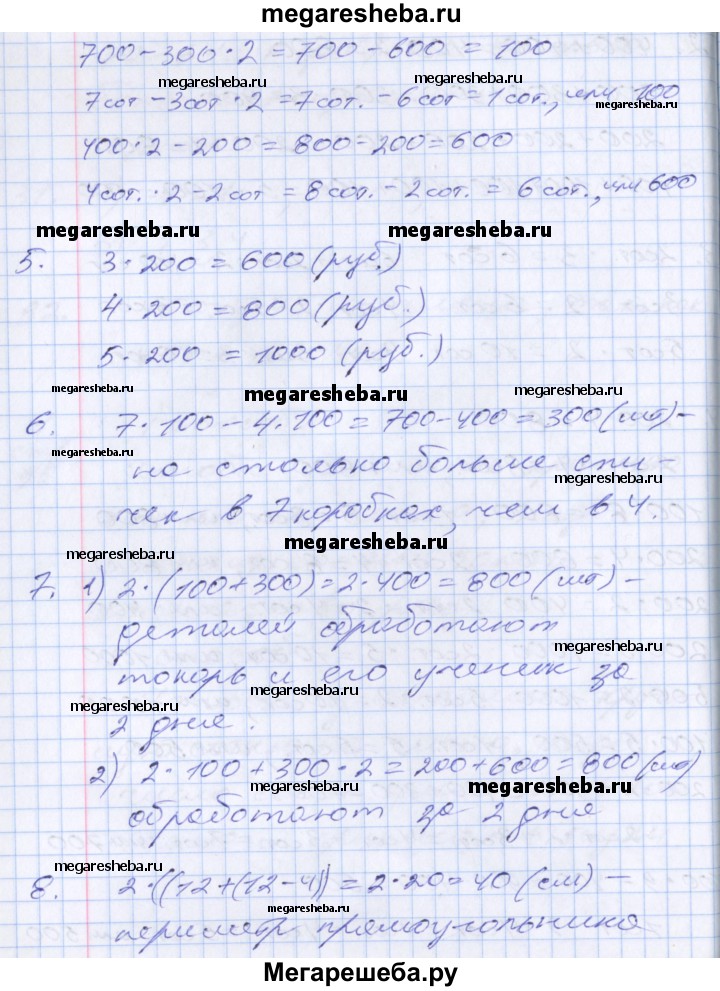 megaresheba.ru
700 - 300 · 2 = 700 - 600 = 100
megaresheba.ru megaresheba.ru
7 сот - 3 сот · 2 = 7 сот. - 6 сот = 1 сот., или 100
megaresheba.ru
400 · 2 - 200 = 800 - 200 = 600
4 сот. · 2 - 2 сот = 8 сот. - 2 сот. = 6 сот., или 600
megaresheba.ru megaresheba.ru
5. 3 · 200 = 600 (руб.)
4 · 200 = 800 (руб.)
5 · 200 = 1000 (руб.)
megaresheba.ru megaresheba.ru megaresheba.ru
6. 7 · 100 - 4 · 100 = 700 - 400 = 300 (шт) -
megaresheba.ru
на столько больше спи-
megaresheba.ru
чек в 7 коробках, чем в 4.
megaresheba.ru
7. 1) 2 · (100 + 300) = 2 · 400 = 800 (шт) -
деталей обработают
megaresheba.ru
токарь и его ученик за
megaresheba.ru
megaresheba.ru megaresheba.ru
2 дня.
2) 2 · 100 + 300 · 2 = 200 + 600 = 800 (шт)
megaresheba.ru megaresheba.ru
обработают за 2 дня
megaresheba.ru
8. 2 · ((12 + (12 - 4)) = 2 · 20 = 40 (см) -
megaresheba.ru megaresheba.ru
периметр прямоугольника
Мегарешеба.ру